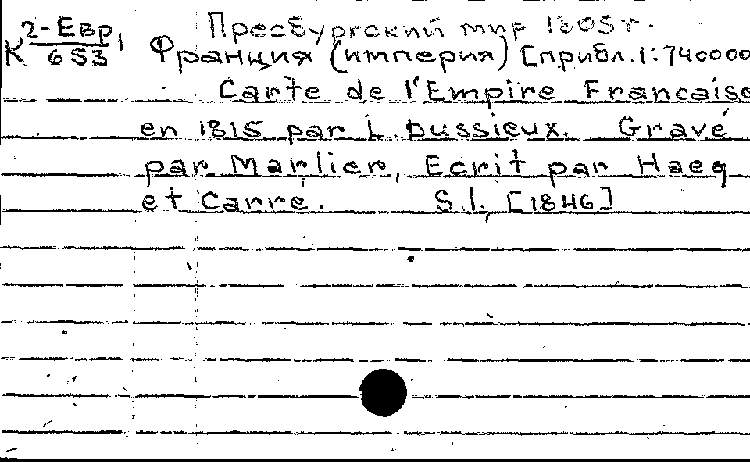 Пресбургский мир 1805 г.
К 2-Евр. Франция (империя) [прибл. 1:7400000
653
Carte de l'Empire Francaise
en 1815 par L. Dussieux. Gravé
par Marlier, Ecrit par Haeq
et Carré. S.l., [1846]